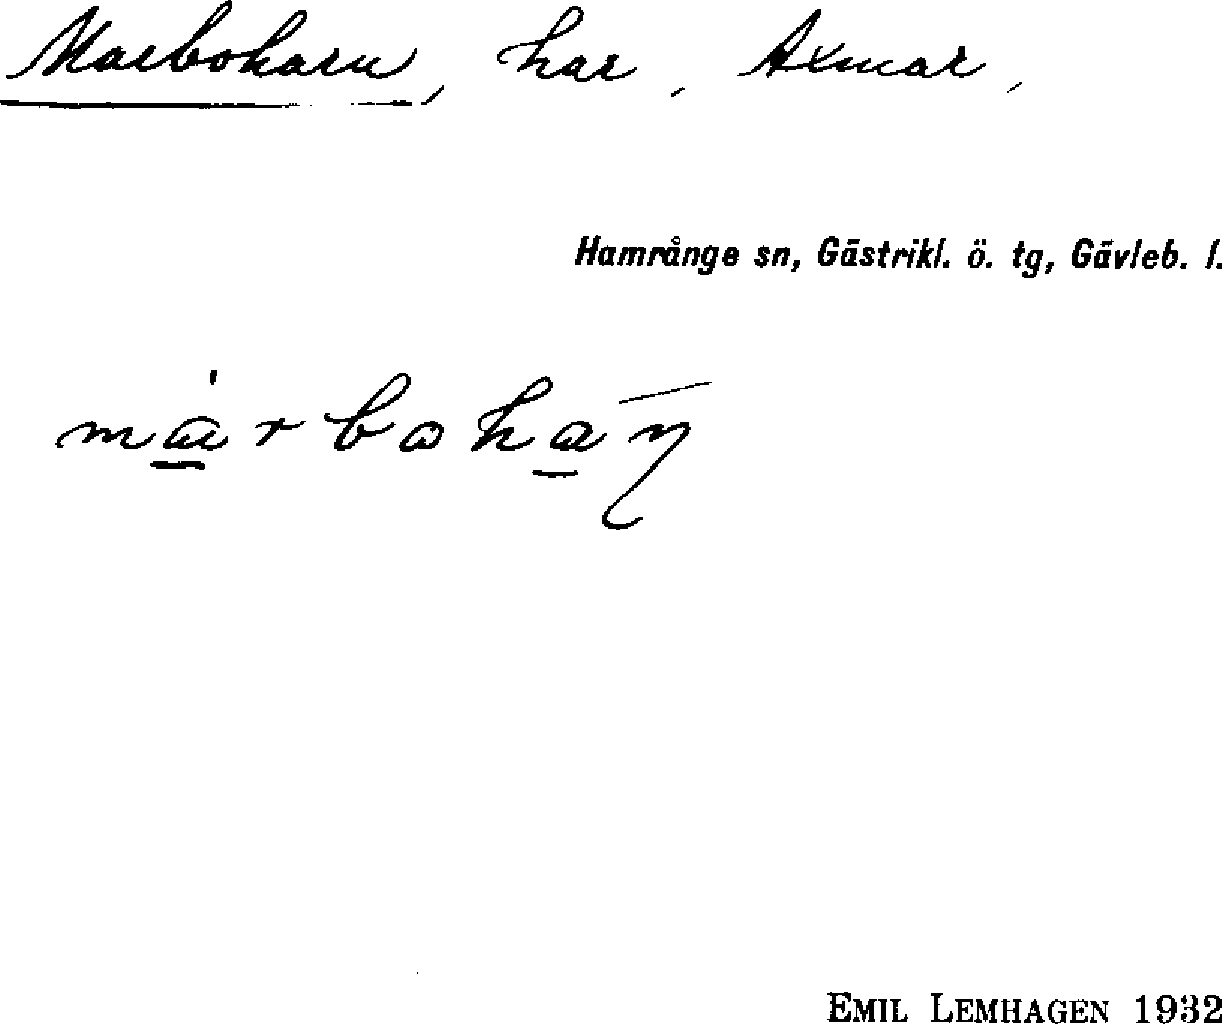 Marboharn, har, Axmar,
Hamrånge sn, Gästrikl. ö. tg, Gävleb. l.
EMIL LEMHAGEN 1932